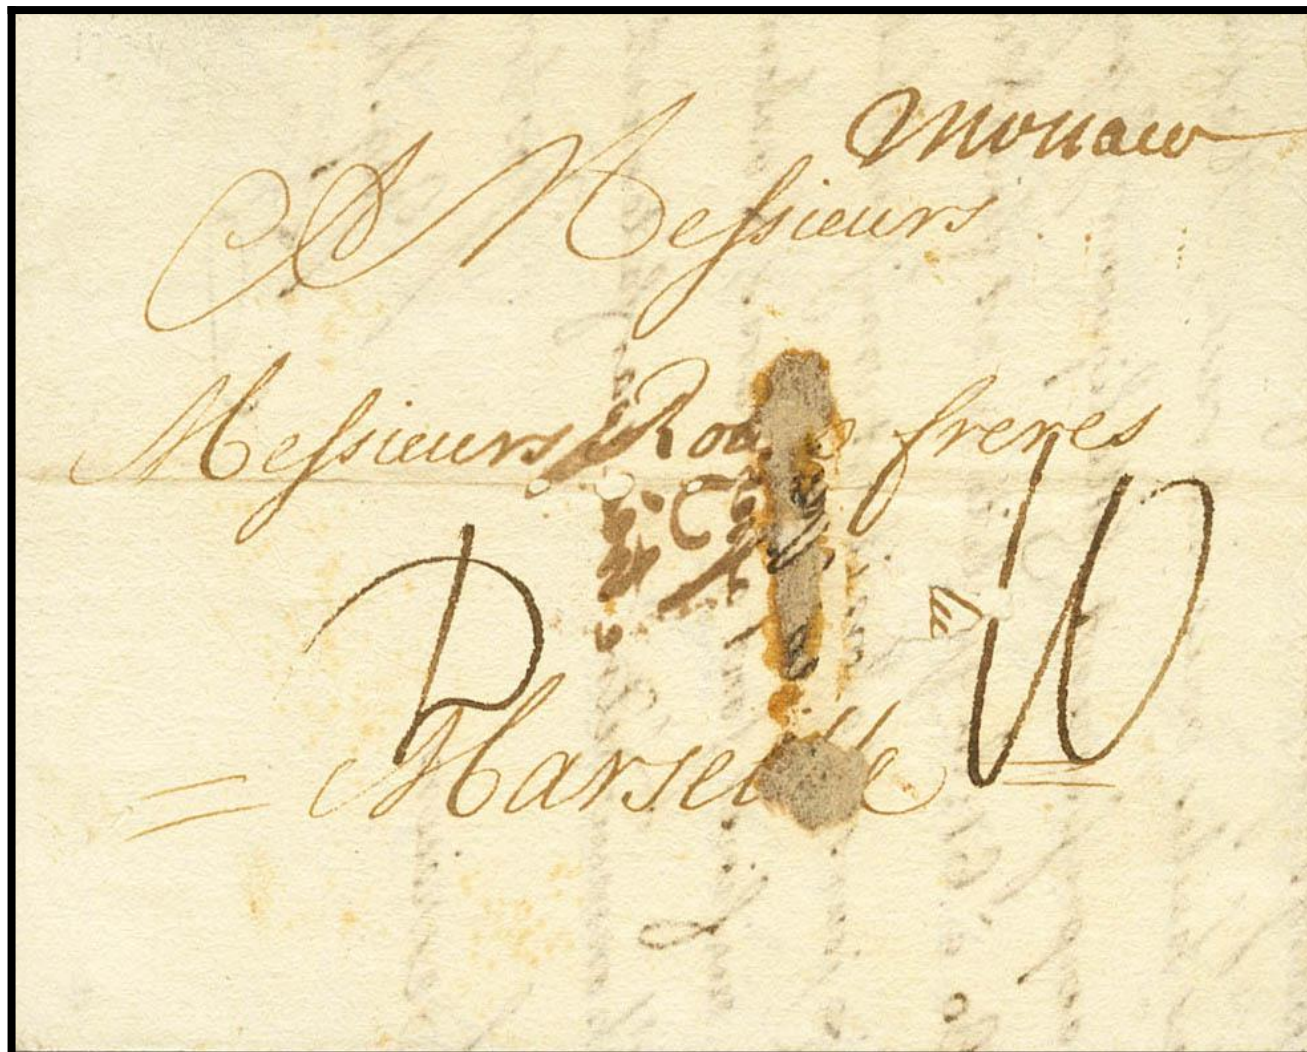 Monaco
A Messieurs
Messieurs freres
D 10
Marseille